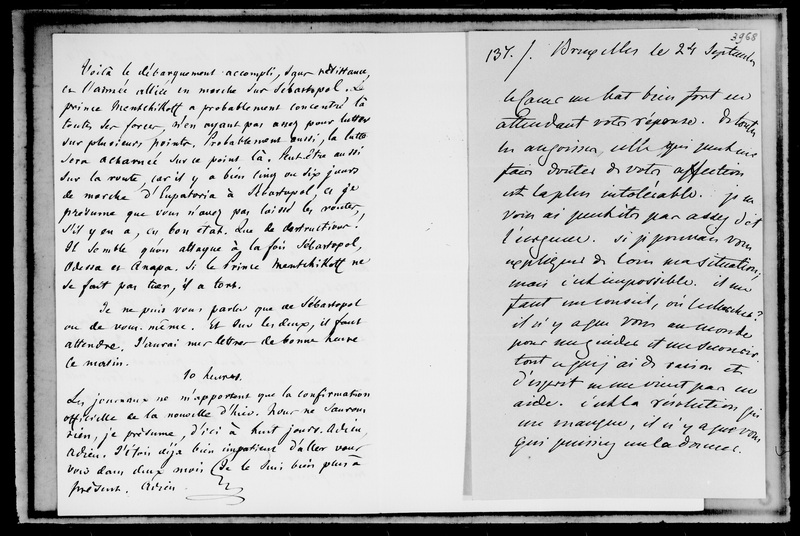 Voilà le débarquement accompli, sans résistance,
et l'armée alliée en marche sur Sébastopol. Le
prince Mentchikoff a probablement concentré là
toutes ses forces, n'en ayant pas assez pour lutter
sur plusieurs points. Probablement aussi, la lutte
sera acharnée sur ce point là. Peut-être aussi
sur la route, car il y a bien cinq ou six jours
de marche d'Eupatoria à Sébastopol, et je
présume que vous n'avez pas laissé les routes,
s'il y en a, en bon état. Que de destructions!
Il semble qu'on attaque à la fois Sébastopol,
Odessa et Anapa. Si le Prince Mentchikoff ne
se fait pas tuer, il a tort.
Je ne puis vous parler que de Sébastopol
ou de vous-même. Et sur les deux, il faut
attendre. J'aurai mes lettres de bonne heure
ce matin.
10 heures.
Les journaux ne m'apportent que la confirmation
officielle de la nouvelle d'hier. Nous ne saurons
rien, je présume, d'ici à huit jours. Adieu,
Adieu. J'étois déjà bien impatient d'aller vous
voir dans deux mois. Je le suis bien plus à
présent. Adieu
3968
137. /. Bruxelles le 24 Septembre
le cœur me bat bien fort en
attendant votre réponse. De toutes
les angoisses, celle qui peut me
faire douter de votre affection
est la plus intolérable. je ne
vous ai peut être pas assez dit
l'urgence. si je pouvais vous
expliquer de loin ma situation,
mais c'est impossible. il me
faut un conseil, où le chercher?
il n'y a que vous au monde
pour me guider et me secourir.
tout ce que j'ai de raison et
d'esprit ne me vient pas en
aide. c'est la résolution qui
me manque, il n'y a que vous
qui puissiez me la donner.